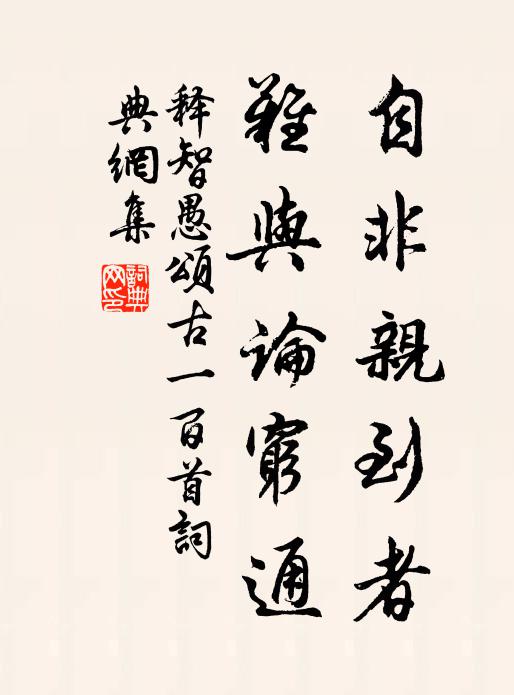 自非親到者
難與論窮通
释智愚頌古一百首詞
典網集
詞典網印